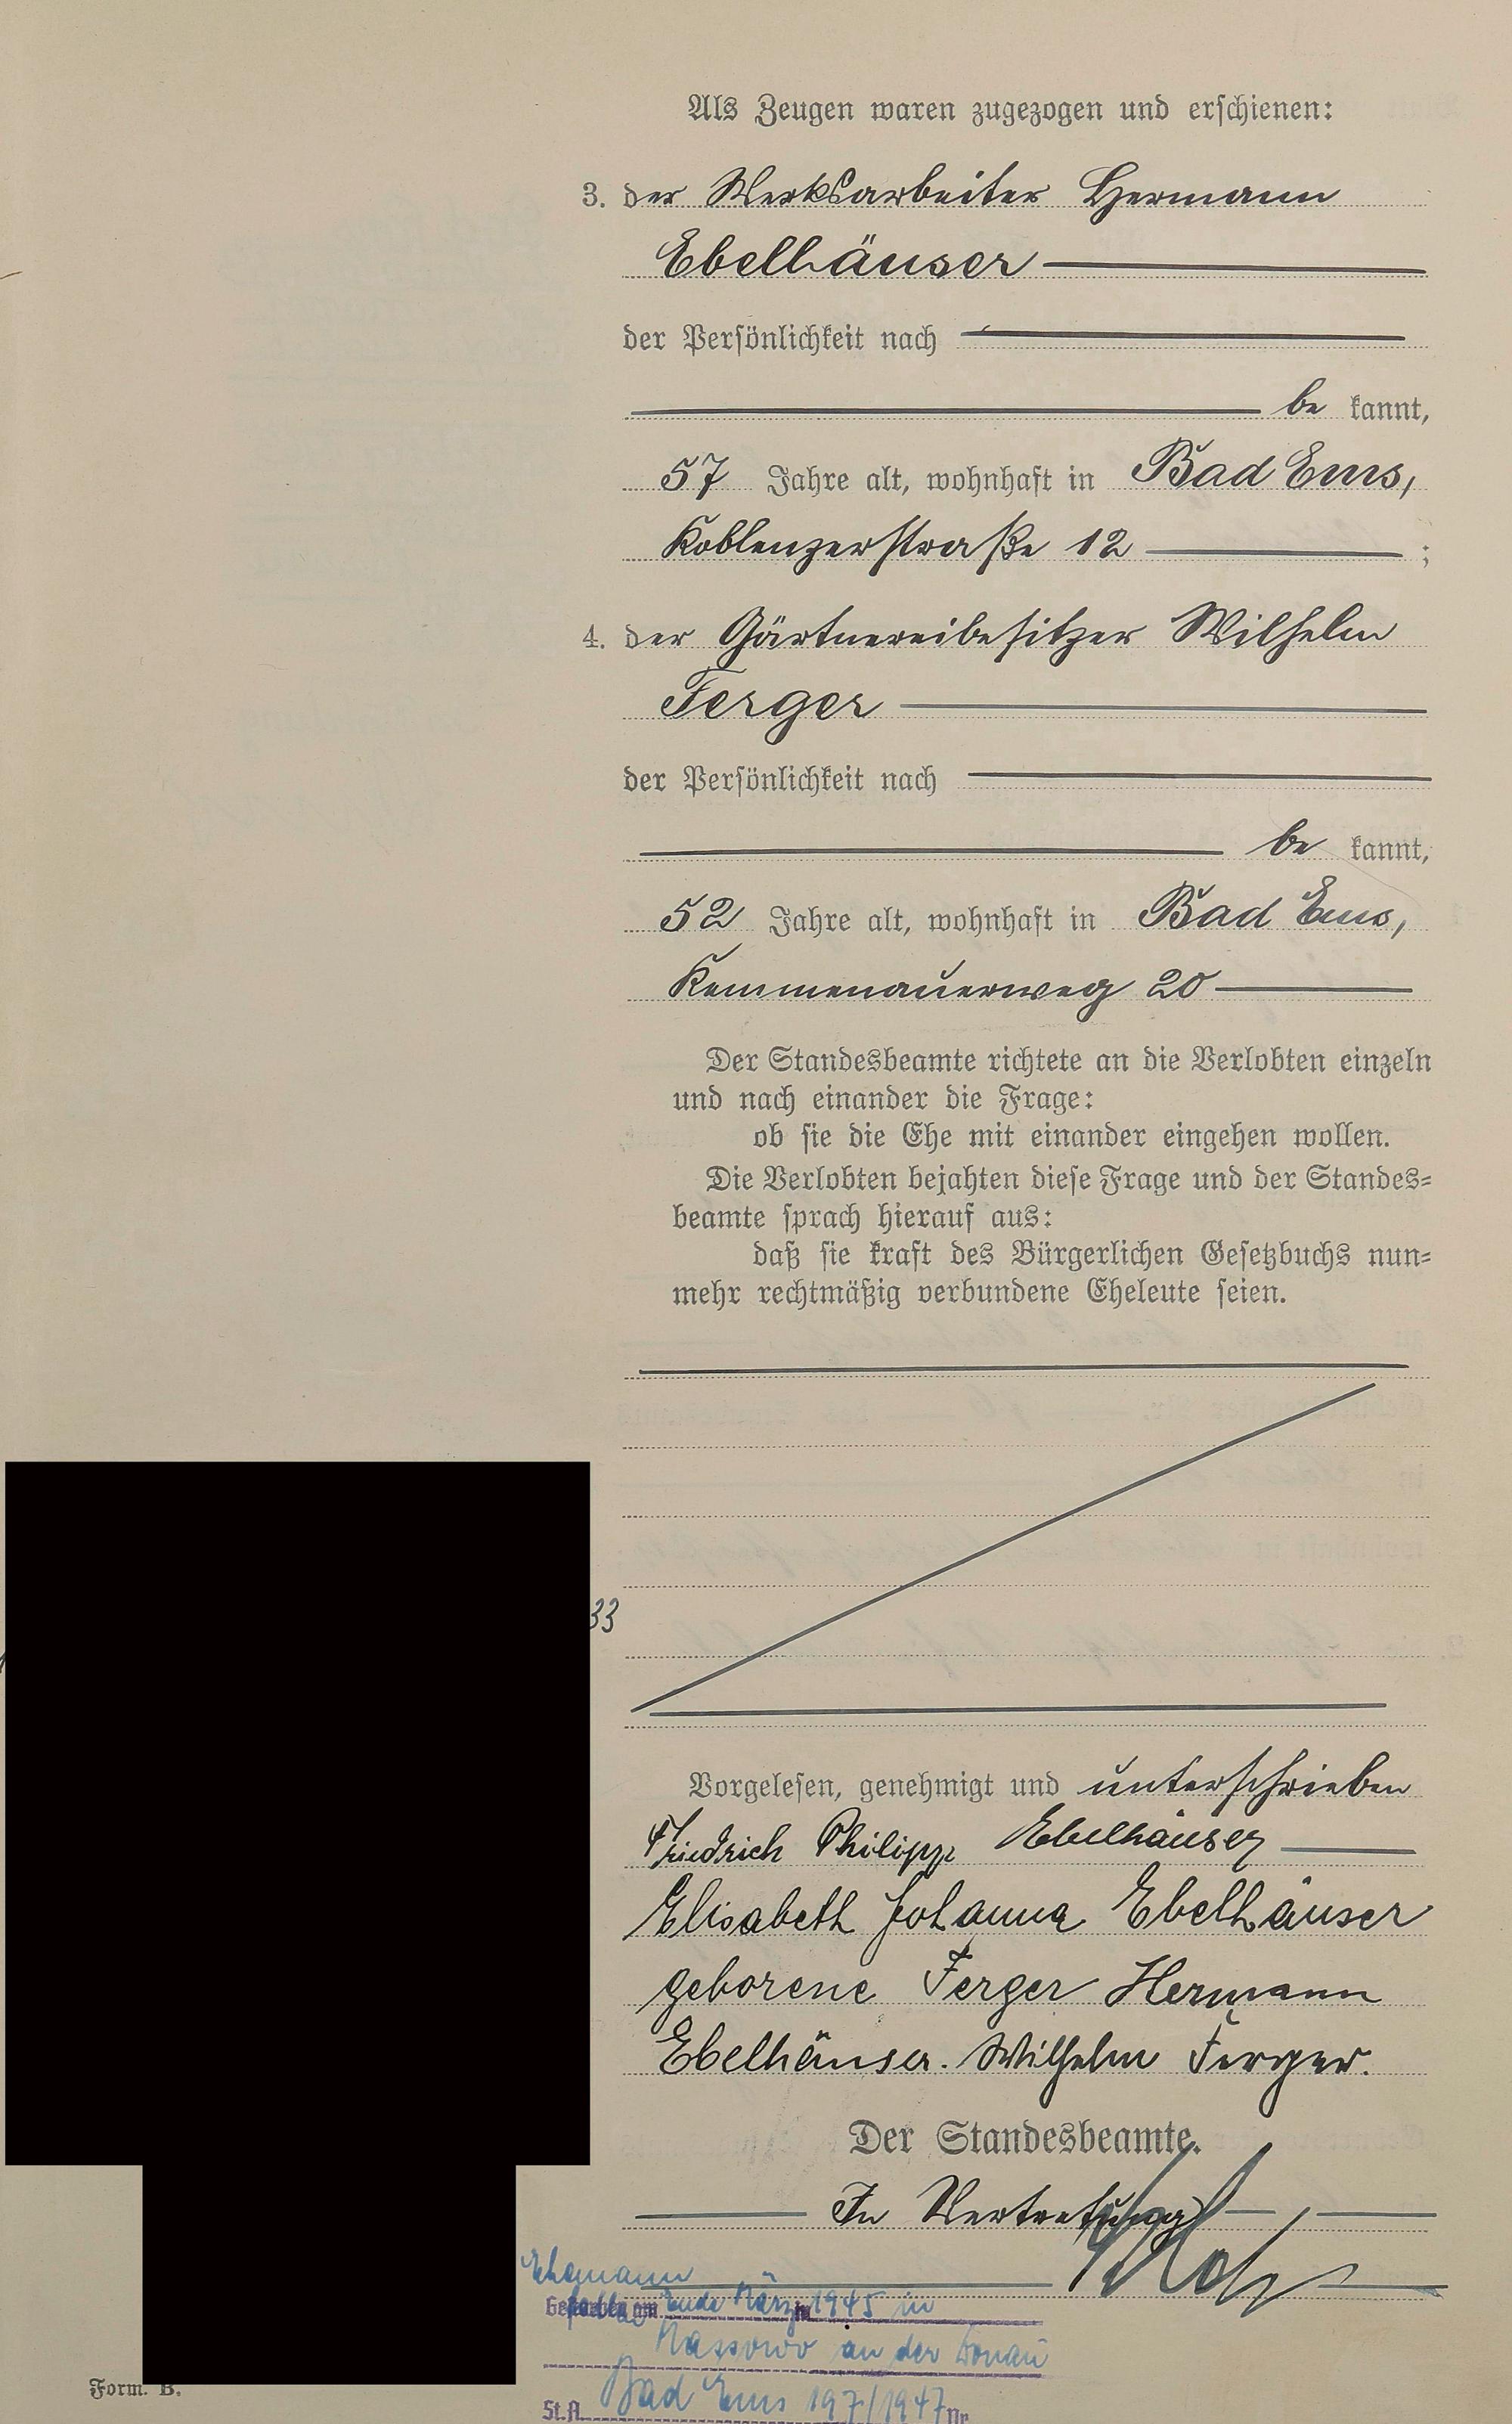 Als Zeugen waren zugezogen und erschienen:
3. der Werksarbeiter Hermann
Ebelhäuser
der Persönlichkeit nach
be kannt,
57 Jahre alt, wohnhaft in Bad Ems,
Koblenzerstraße 12 ;
4. der Gärtnereibesitzer Wilhelm
Ferger
der Persönlichkeit nach
be kannt,
52 Jahre alt, wohnhaft in Bad Ems,
Kemmenauerweg 20
Der Standesbeamte richtete an die Verlobten einzeln
und nach einander die Frage:
ob sie die Ehe mit einander eingehen wollen.
Die Verlobten bejahten diese Frage und der Standes=
beamte sprach hierauf aus:
daß sie kraft des Bürgerlichen Gesetzbuchs nun=
mehr rechtmäßig verbundene Eheleute seien.
33
Vorgelesen, genehmigt und unterschrieben
Friedrich Philipp Ebelhäuser
Elisabeth Johanna Ebelhäuser
geborene Ferger Hermann
Ebelhäuser. Wilhelm Ferger.
Der Standesbeamte.
In Vertretung
Ehemann
Ende März 1945 in
an der Donau
St.A. Bad Ems 197/1947 Nr.
Form. B.